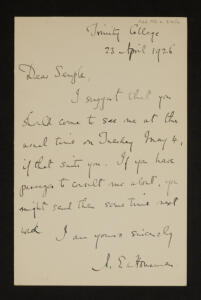 Trinity College
23 April 1926
Dear Semple,
I suggest that you
should come to see me at the
usual time on Tuesday May 4,
if that suits you. If you have
passages to consult me about, you
might send them some time next
week.
I am yours sincerely
A. E. Housman